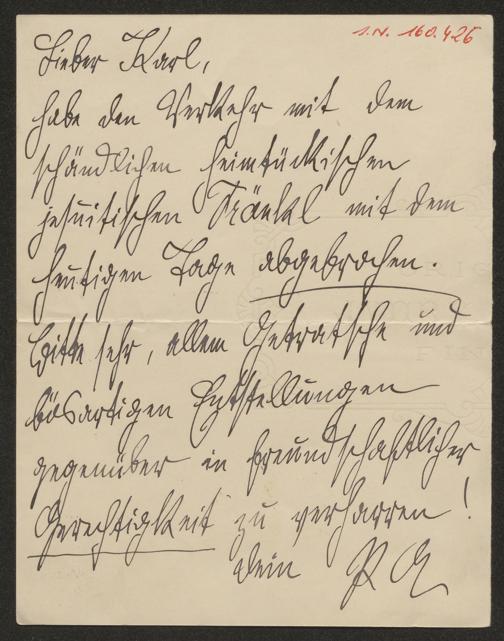 I.N. 160.426
Lieber Karl,
habe den Verkehr mit dem
schändlichen heimtückischen
jesuitischen Fränkl mit dem
heutigen Tage abgebrochen.
Bitte sehr, allem Getratsche und
bösartigen Entstellungen
gegenüber in freundschaftlicher
Gerechtigkeit zu verharren!
Dein P A